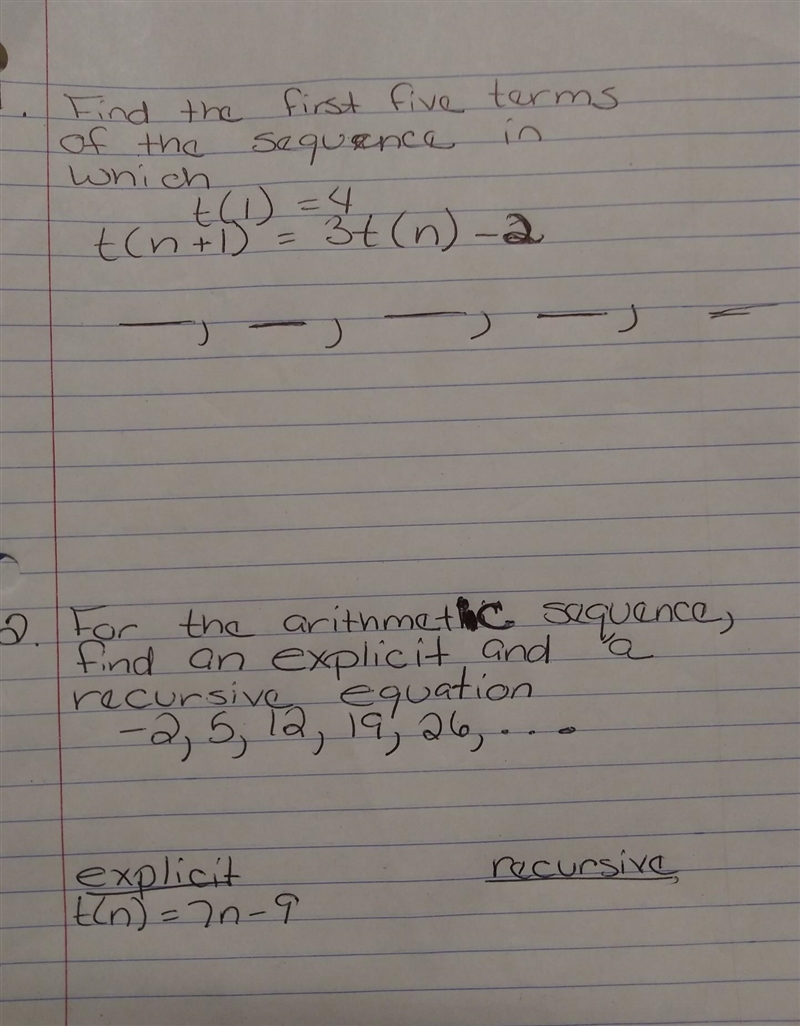 1. Find the first five terms
of the sequence in
which
t(1) = 4
t(n+1) = 3t(n) - 2
__, __, __, __, __
2. For the arithmetic sequence,
find an explicit and a
recursive equation
-2, 5, 12, 19, 26, ....
explicit recursive
t(n) = 7n - 9